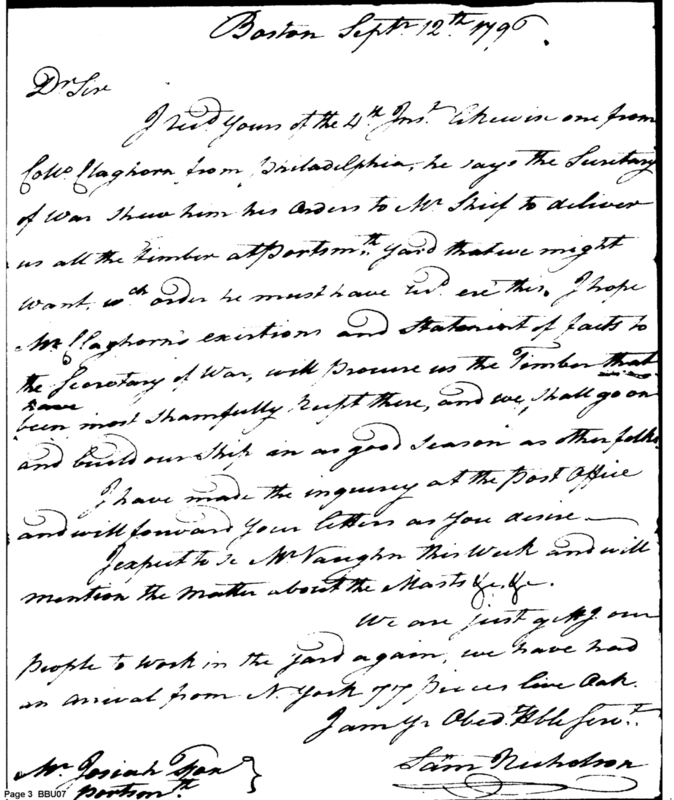 Boston Septr 12th 1796.
Dr Sir
I recd Yours of the 4th Inst. likewise one from
Collo Claghorn from Philadelphia, he says the Secretary
of War shew him his Orders to Mr Shief to deliver
us all the timber at Portsmth Yard that we might
want, wch order he must have recd ere this. I hope
Mr Claghorn's exertions and Statement of facts to
the Secretary of War, will procure us the Timber that
have
been most shamfully kept there, and we, shall go on
and build our Ship in as good season as other folks
I have made the inquirey at the Post Office
and will forward your letters as you desire —
I expect to se Mr Vaughn this Week and will
mention the matter about the Masts &c. &c.
We are just gettg our
people to work in the Yard again, we have had
an arrival from N. York 77 pieces live Oak.
I am Yr Obedt Hble Servt.
Sam Nicholson
Mr Josiah Fox }
Portsmth
Page 3 BBU07